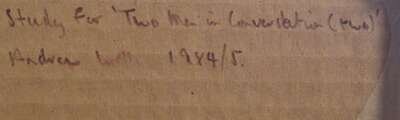 Study For 'Two Men in Conversation (two)'
Andrew 1984/5.